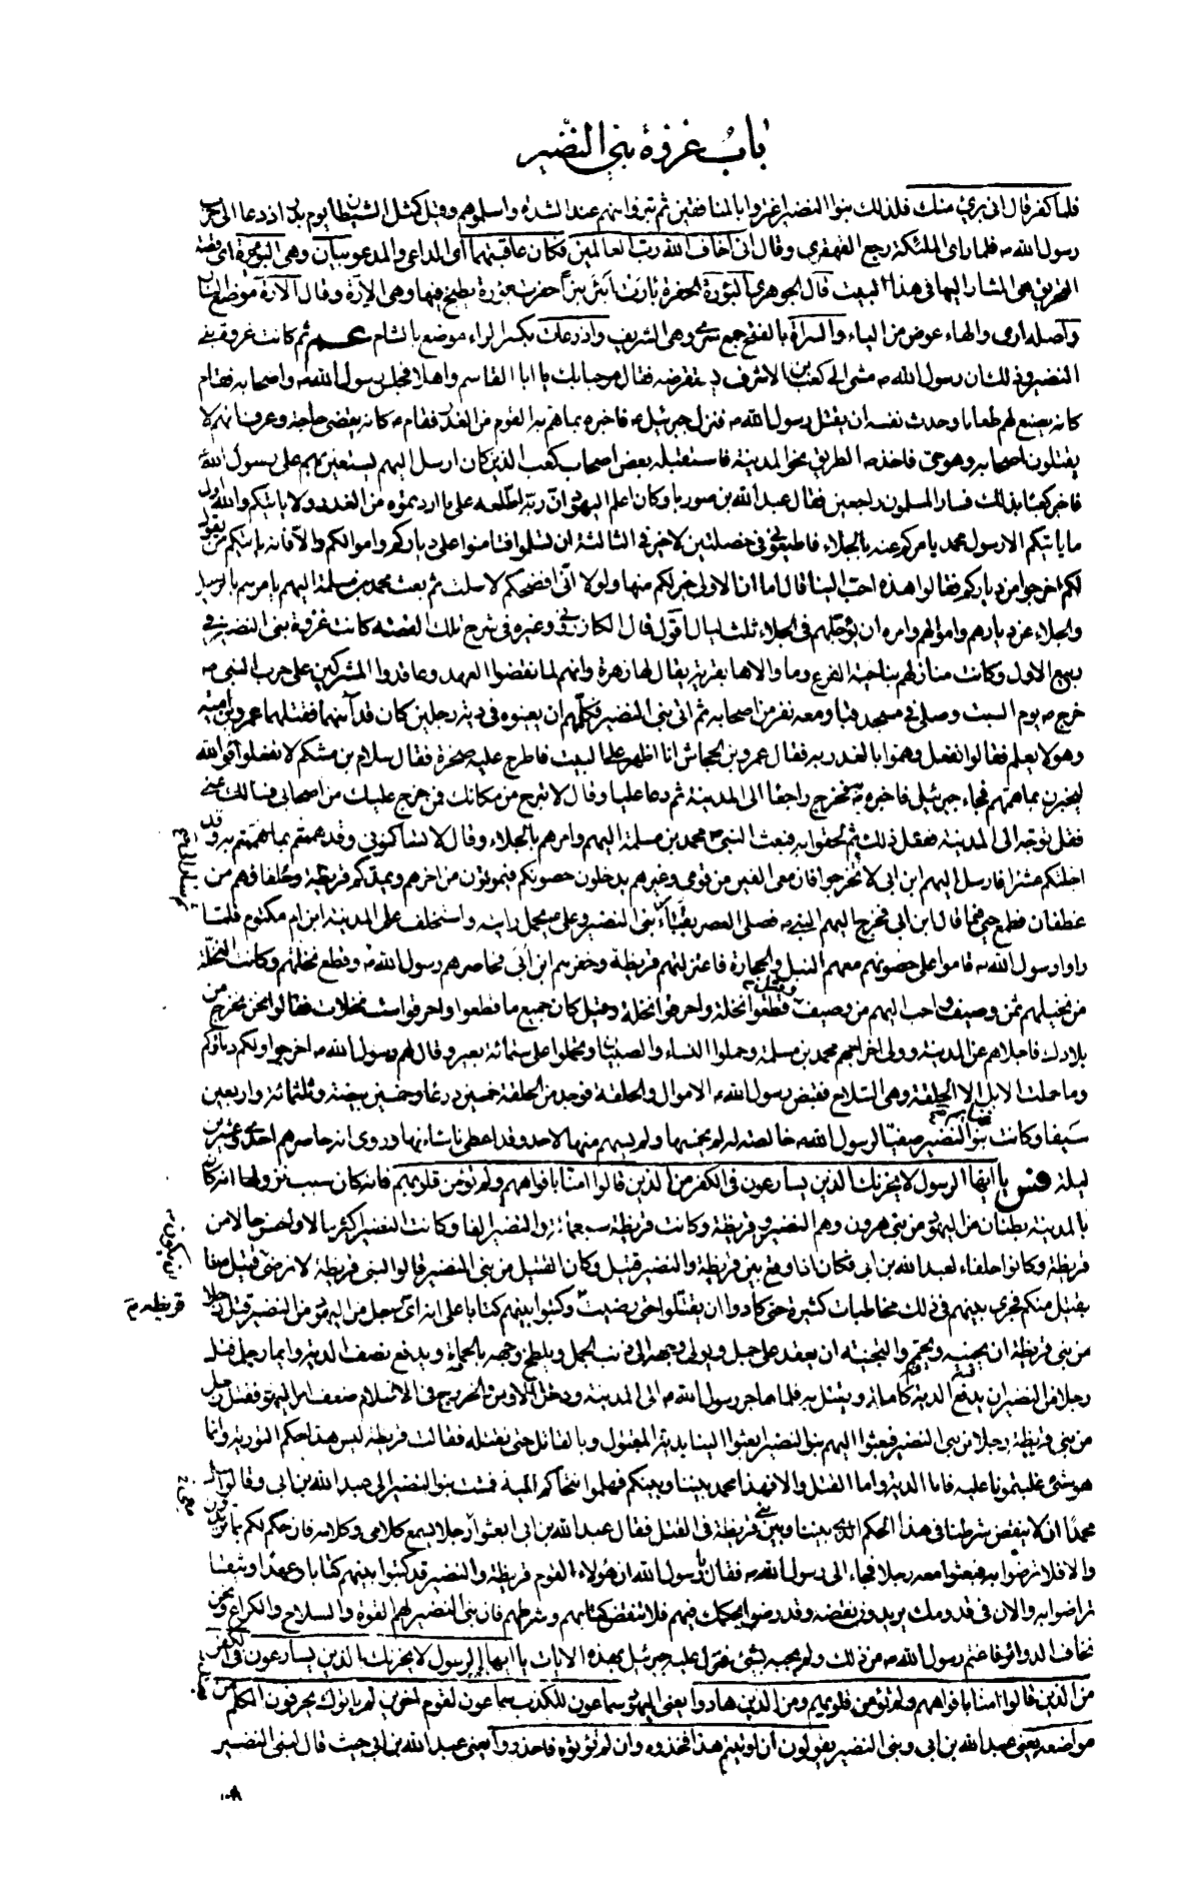 باب غزوة بني النضير
فلما كفر قال اني بريء منك فلذلك بنوا النضير اغتروا بالمنافقين ثم تبرؤا منهم عند الشدة واسلموهم وقيل كمثل الشيطان يوم بدر اذ دعا الى حرب
رسول الله ص فلما راى الملئكة رجع القهقرى وقال اني اخاف الله رب العالمين فكان عاقبتهما اى الداعي والمدعو بيان وهى البويرة
المشار اليها في هذا البيت قال الجوهري البؤرة الحفرة بارت ابئر بئراً حفرت بؤرة يطبخ فيها وهى الإرة وقال الارة موضع النار
واصله ارى والهاء عوض من الياء والسراة بالفتح جمع سرى وهو الشريف واذرعات بكسر الراء موضع بالشام عم ثم كانت غزوة بني
النضير وذلك ان رسول الله ص مشى الى كعب بن الاشرف يستقرضه فقال مرحبا بك يا ابا القاسم واهلا فجلس رسول الله ص واصحابه فقام
كانه يصنع لهم طعاما وحدث نفسه ان يقتل رسول الله ص فنزل جبرئيل ع فاخبره بما هم به القوم من الغدر فقام ص كانه يقضي حاجة وعرف انهم لا
يقتلون اصحابه وهو حى فاخذ ص الطريق نحو المدينة فاستقبله بعض اصحاب كعب الذين كان ارسل اليهم يستعين بهم على رسول الله
فاخبر كعبا بذلك فسار المسلمون راجعين فقال عبد الله بن صوريا وكان اعلم اليهود ان ربه اطلعه على ما اردتموه من الغدر ولا ياتيكم والله اول
ما ياتيكم الا رسول محمد يامركم عنه بالجلاء فاطيعوني في خصلتين لا خير في الثالثة ان تسلموا فتامنوا على دياركم واموالكم والا فانه ياتيكم من يقول
لكم اخرجوا من دياركم فقالوا هذه احب الينا قال اما ان الاولى خير لكم منها ولولا اني افضحكم لاسلمت ثم بعث محمد بن مسلمة اليهم يامرهم بالرحيل
والجلاء عن ديارهم واموالهم وامره ان يؤجلهم في الجلاء ثلث ليال اقول قال الكازروني وغيره في شرح تلك القصة كانت غزوة بني النضير في
ربيع الاول وكانت منازلهم بناحية الفرع وما والاها بقرية يقال لها زهرة وانهم لما نقضوا العهد وعاقدوا المشركين على حرب النبي ص
خرج ص يوم السبت وصلى في مسجد قبا ومعه نفر من اصحابه ثم اتى بني النضير فكلمهم ان يعينوه في دية رجلين كان قد آمنهما فقتلهما عمرو بن امية
وهو لا يعلم فقالوا نفعل وهموا بالغدر به فقال عمرو بن الجحاش انا اظهر على البيت فاطرح عليه صخرة فقال سلام بن مشكم لا تفعلوا فوالله
ليخبرن بما هممتم فجاء جبرئيل فاخبره ص فخرج راجعا الى المدينة ثم دعا عليا وقال لا تبرح من مكانك فمن خرج عليك من اصحابي فسالك عني
فقل توجه الى المدينة ففعل ذلك ثم لحقوا به فبعث النبي ص محمد بن مسلمة اليهم وامرهم بالجلاء وقال لا تساكنوني وقد هممتم بما هممتم به وقد
اجلتكم عشرا فارسل اليهم ابن ابي لا تخرجوا فان معي الفين من قومي وغيرهم يدخلون حصونكم فيموتون من اخرهم ويمدكم قريظة وحلفاؤهم من
غطفان فطمع حيي فيما قال ابن ابي فخرج اليهم النبي ص فصلى العصر بفناء بني النضير وعلي ع يحمل رايته واستخلف على المدينة ابن ام مكتوم فلما
راوا رسول الله ص قاموا على حصونهم معهم النبل والحجارة فاعتزلتهم قريظة وخفرهم ابن ابي فحاصرهم رسول الله ص وقطع نخلهم وكانت النخلة
من نخيلهم ثمن وصيف واحب اليهم من وصيف وقيل قطعوا نخلة واحرقوا نخلة وقيل كان جميع ما قطعوا واحرقوا ست نخلات فقالوا نحن نخرج من
بلادك فاجلاهم عن المدينة وولى اخراجهم محمد بن مسلمة وحملوا النساء والصبيان وتحملوا على ستمائة بعير وقال لهم رسول الله ص اخرجوا ولكم دماؤكم
وما حملت الابل الا الحلقة وهى السلاح فقبض رسول الله ص الاموال والحلقة فوجد من الحلقة خمسين درعا وخمسين بيضة وثلثمائة واربعين
سيفا وكانت بنو النضير صفيا لرسول الله ص خالصة له لم يخمسها ولم يسهم منها لاحد وقد اعطى ناسا منها وروى انه حاصرهم احدى وعشرين
ليلة فس يا ايها الرسول لا يحزنك الذين يسارعون في الكفر من الذين قالوا امنا بافواههم ولم تؤمن قلوبهم فانه كان سبب نزولها انه كان
بالمدينة بطنان من اليهود من بني هرون وهم النضير وقريظة وكانت قريظة سبعمائة والنضير الفا وكانت النضير اكثر مالا واحسن حالا من
قريظة وكانوا حلفاء لعبد الله بن ابي فكان اذا وقع بين قريظة والنضير قتيل وكان القتيل من بني النضير قالوا لبني قريظة لا نرضى ان يكون قتيل منا
بقتيل منكم فجرى بينهم في ذلك مخاطبات كثيرة حتى كادوا ان يقتتلوا حتى رضيت قريظة وكتبوا بينهم كتابا على انه اى رجل من اليهود من النضير قتل رجلا
من بني قريظة ان يجنيه ويحمم والتجنية ان يقعد على جمل ويولى وجهه الى ذنب الجمل ويلطخ وجهه بالحماة ويدفع نصف الدية وايما رجل قتل
رجلا من النضير ان يدفع الدية كاملة ويقتل به فلما هاجر رسول الله ص الى المدينة ودخل الاوس والخزرج في الاسلام ضعف امر اليهود فقتل رجل
من بني قريظة رجلا من بني النضير فبعثوا اليهم بنو النضير ابعثوا الينا بدية المقتول وبالقاتل حتى نقتله فقالت قريظة ليس هذا حكم التورية وانما
هو شيء غلبتمونا عليه فاما الدية واما القتل والا فهذا محمد بيننا وبينكم فهلموا نتحاكم اليه فمشت بنو النضير الى عبد الله بن ابي وقالوا سل
محمدا ان لا ينقض شرطنا في هذا الحكم الذي بيننا وبين بني قريظة في القتل فقال عبد الله بن ابي ابعثوا رجلا يسمع كلامي وكلامه فان حكم لكم بما تريدون
والا فلا ترضوا به فبعثوا معه رجلا فجاء الى رسول الله ص فقال يا رسول الله ان هؤلاء القوم قريظة والنضير قد كتبوا بينهم كتابا وعهدا وثيقا
تراضوا به والان في قدومك يريدون نقضه وقد رضوا بحكمك فيهم فلا تنقض كتابهم وشرطهم فان بني النضير لهم القوة والسلاح والكراع ونحن
نخاف الدوائر فاغتم رسول الله ص من ذلك ولم يجبه بشيء فنزل عليه جبرئيل بهذه الايات يا ايها الرسول لا يحزنك الذين يسارعون في الكفر
من الذين قالوا امنا بافواههم ولم تؤمن قلوبهم ومن الذين هادوا يعني اليهود سماعون للكذب سماعون لقوم اخرين لم ياتوك يحرفون الكلم من
مواضعه يعني عبد الله بن ابي وبني النضير يقولون ان اوتيتم هذا فخذوه وان لم تؤتوه فاحذروا يعني عبد الله بن ابي حيث قال لبني النضير